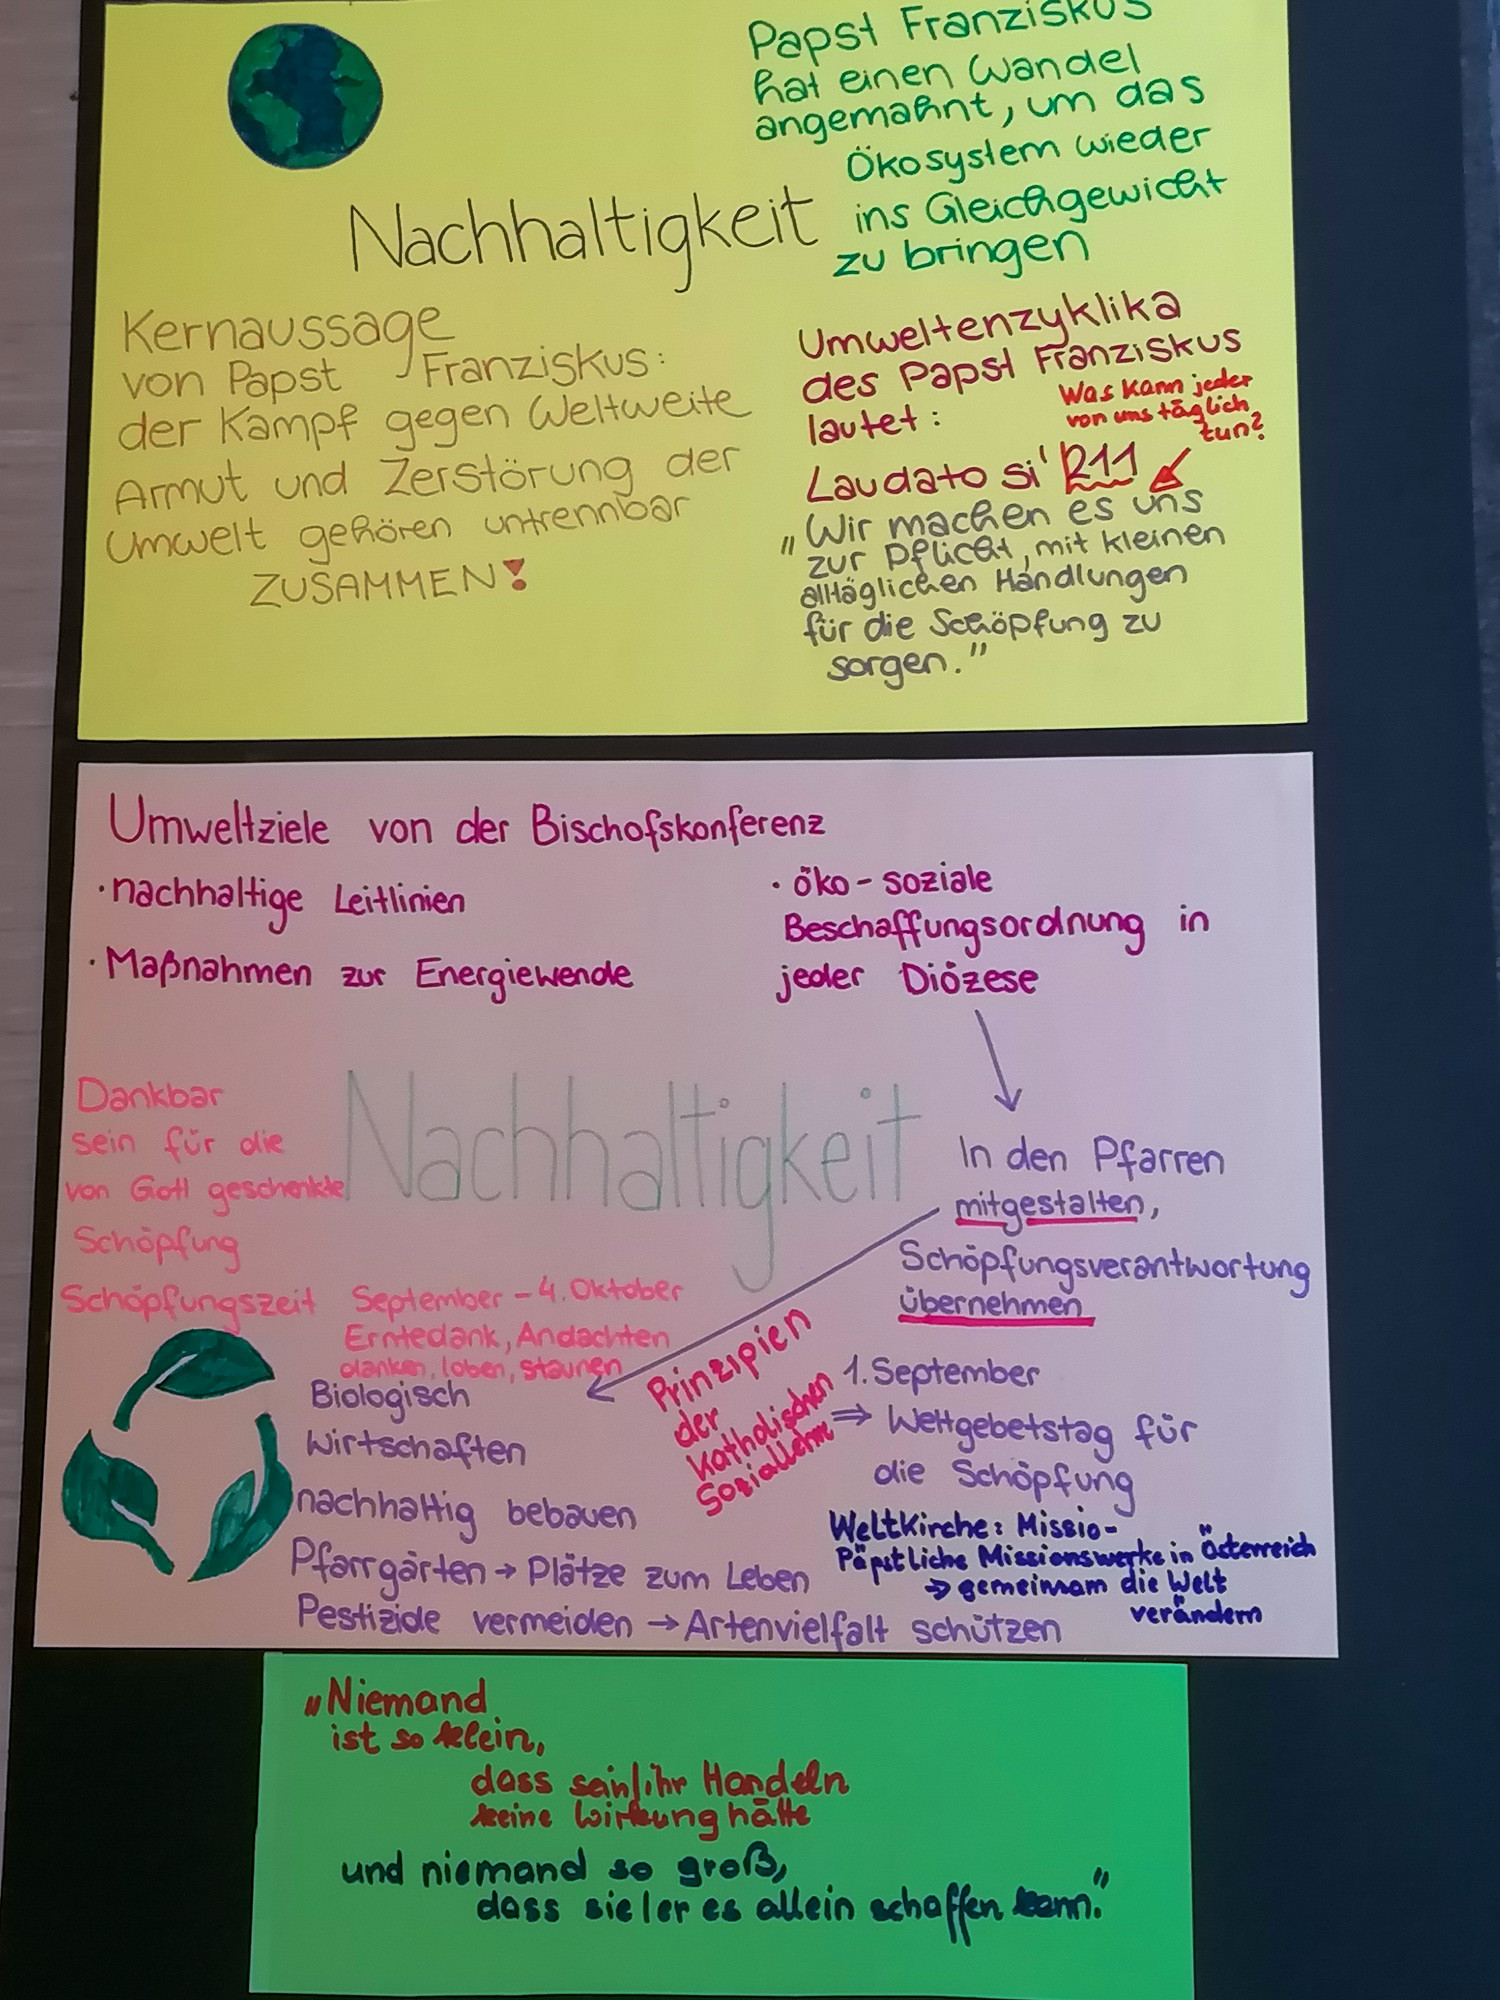 Papst Franziskus
hat einen Wandel
angemahnt, um das
Ökosystem wieder
ins Gleichgewicht
zu bringen
Nachhaltigkeit
Kernaussage
von Papst Franziskus:
der Kampf gegen Weltweite
Armut und Zerstörung der
Umwelt gehören untrennbar
ZUSAMMEN!
Umweltenzyklika
des Papst Franziskus
lautet:
Was kann jeder
von uns täglich
tun?
Laudato si' 211
„Wir machen es uns
zur Pflicht, mit kleinen
alltäglichen Handlungen
für die Schöpfung zu
sorgen."
Umweltziele von der Bischofskonferenz
· nachhaltige Leitlinien
· Maßnahmen zur Energiewende
· öko-soziale
Beschaffungsordnung in
jeder Diözese
Nachhaltigkeit
Dankbar
sein für die
von Gott geschenkte
Schöpfung
Schöpfungszeit September – 4. Oktober
Erntedank, Andachten
danken, loben, staunen
In den Pfarren
mitgestalten,
Schöpfungsverantwortung
übernehmen
Biologisch
Wirtschaften
nachhaltig bebauen
Pfarrgärten → Plätze zum Leben
Pestizide vermeiden → Artenvielfalt schützen
Prinzipien
der
katholischen
Soziallehre
1. September
⇒ Weltgebetstag für
die Schöpfung
Weltkirche: Missio-
Päpstliche Missionswerke in Österreich
→ gemeinsam die Welt
verändern
„Niemand
ist so klein,
dass sein/ihr Handeln
keine Wirkung hätte
und niemand so groß,
dass sie/er es allein schaffen kann."